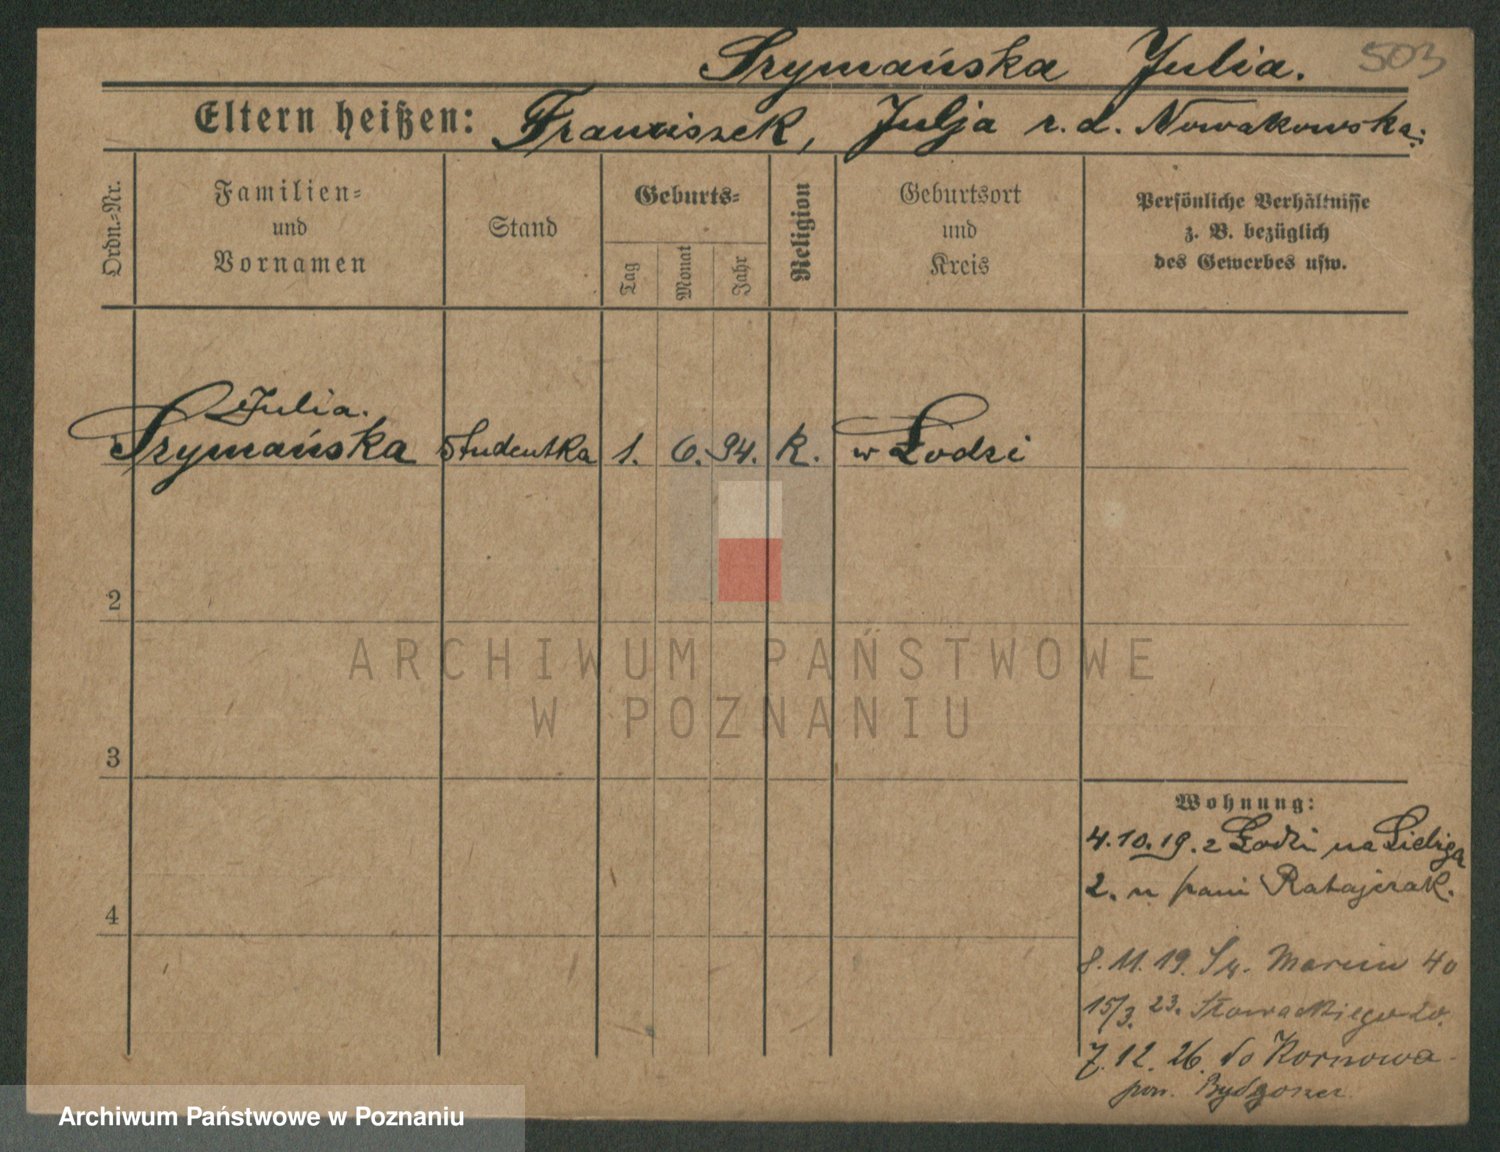 Szymańska Julia. 503
Eltern heißen: Franciszek, Julja r. d. Nowakowska.
Ordn.-Nr.
Familien-
und
Vornamen
Stand
Geburts-
Tag
Monat
Jahr
Religion
Geburtsort
und
Kreis
Persönliche Verhältnisse
z. B. bezüglich
des Gewerbes usw.
Julia.
Szymańska Studentka 1. 6. 94. k. w Łodzi
2
3
4
ARCHIWUM PAŃSTWOWE
W POZNANIU
Wohnung:
4.10.19. z Łodzi na
2. u pani Ratajczak.
8.11.19. Św. Marcin 40
15/3. 23. Słowackiego 20.
7.12.26. do
pow. Bydgoszcz
Archiwum Państwowe w Poznaniu